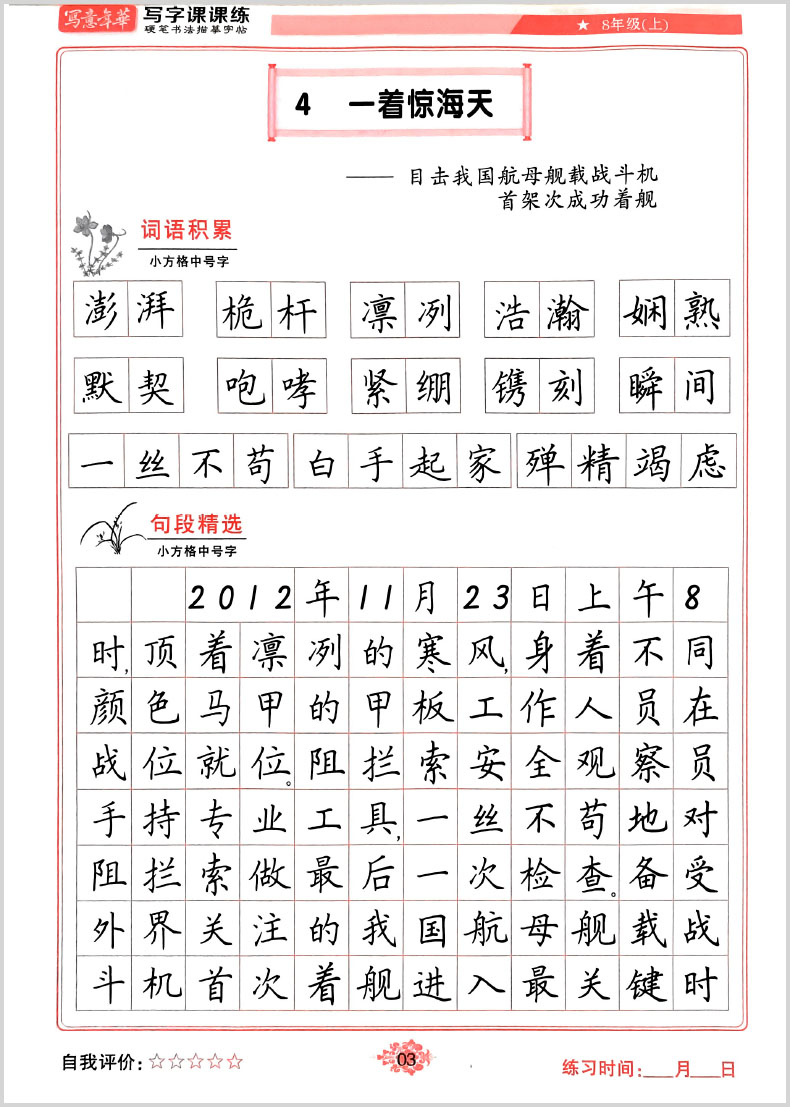 写意年華 写字课课练
硬笔书法描摹字帖
★ 8年级(上)
4 一着惊海天
—— 目击我国航母舰载战斗机
首架次成功着舰
词语积累
小方格中号字
澎湃 桅杆 凛冽 浩瀚 娴熟
默契 咆哮 紧绷 镌刻 瞬间
一丝不苟 白手起家 殚精竭虑
句段精选
小方格中号字
2012年11月23日上午8
时,顶着凛冽的寒风,身着不同
颜色马甲的甲板工作人员在
战位就位。阻拦索安全观察员
手持专业工具,一丝不苟地对
阻拦索做最后一次检查。备受
外界关注的我国航母舰载战
斗机首次着舰进入最关键时
自我评价:☆☆☆☆☆
03
练习时间:___月___日